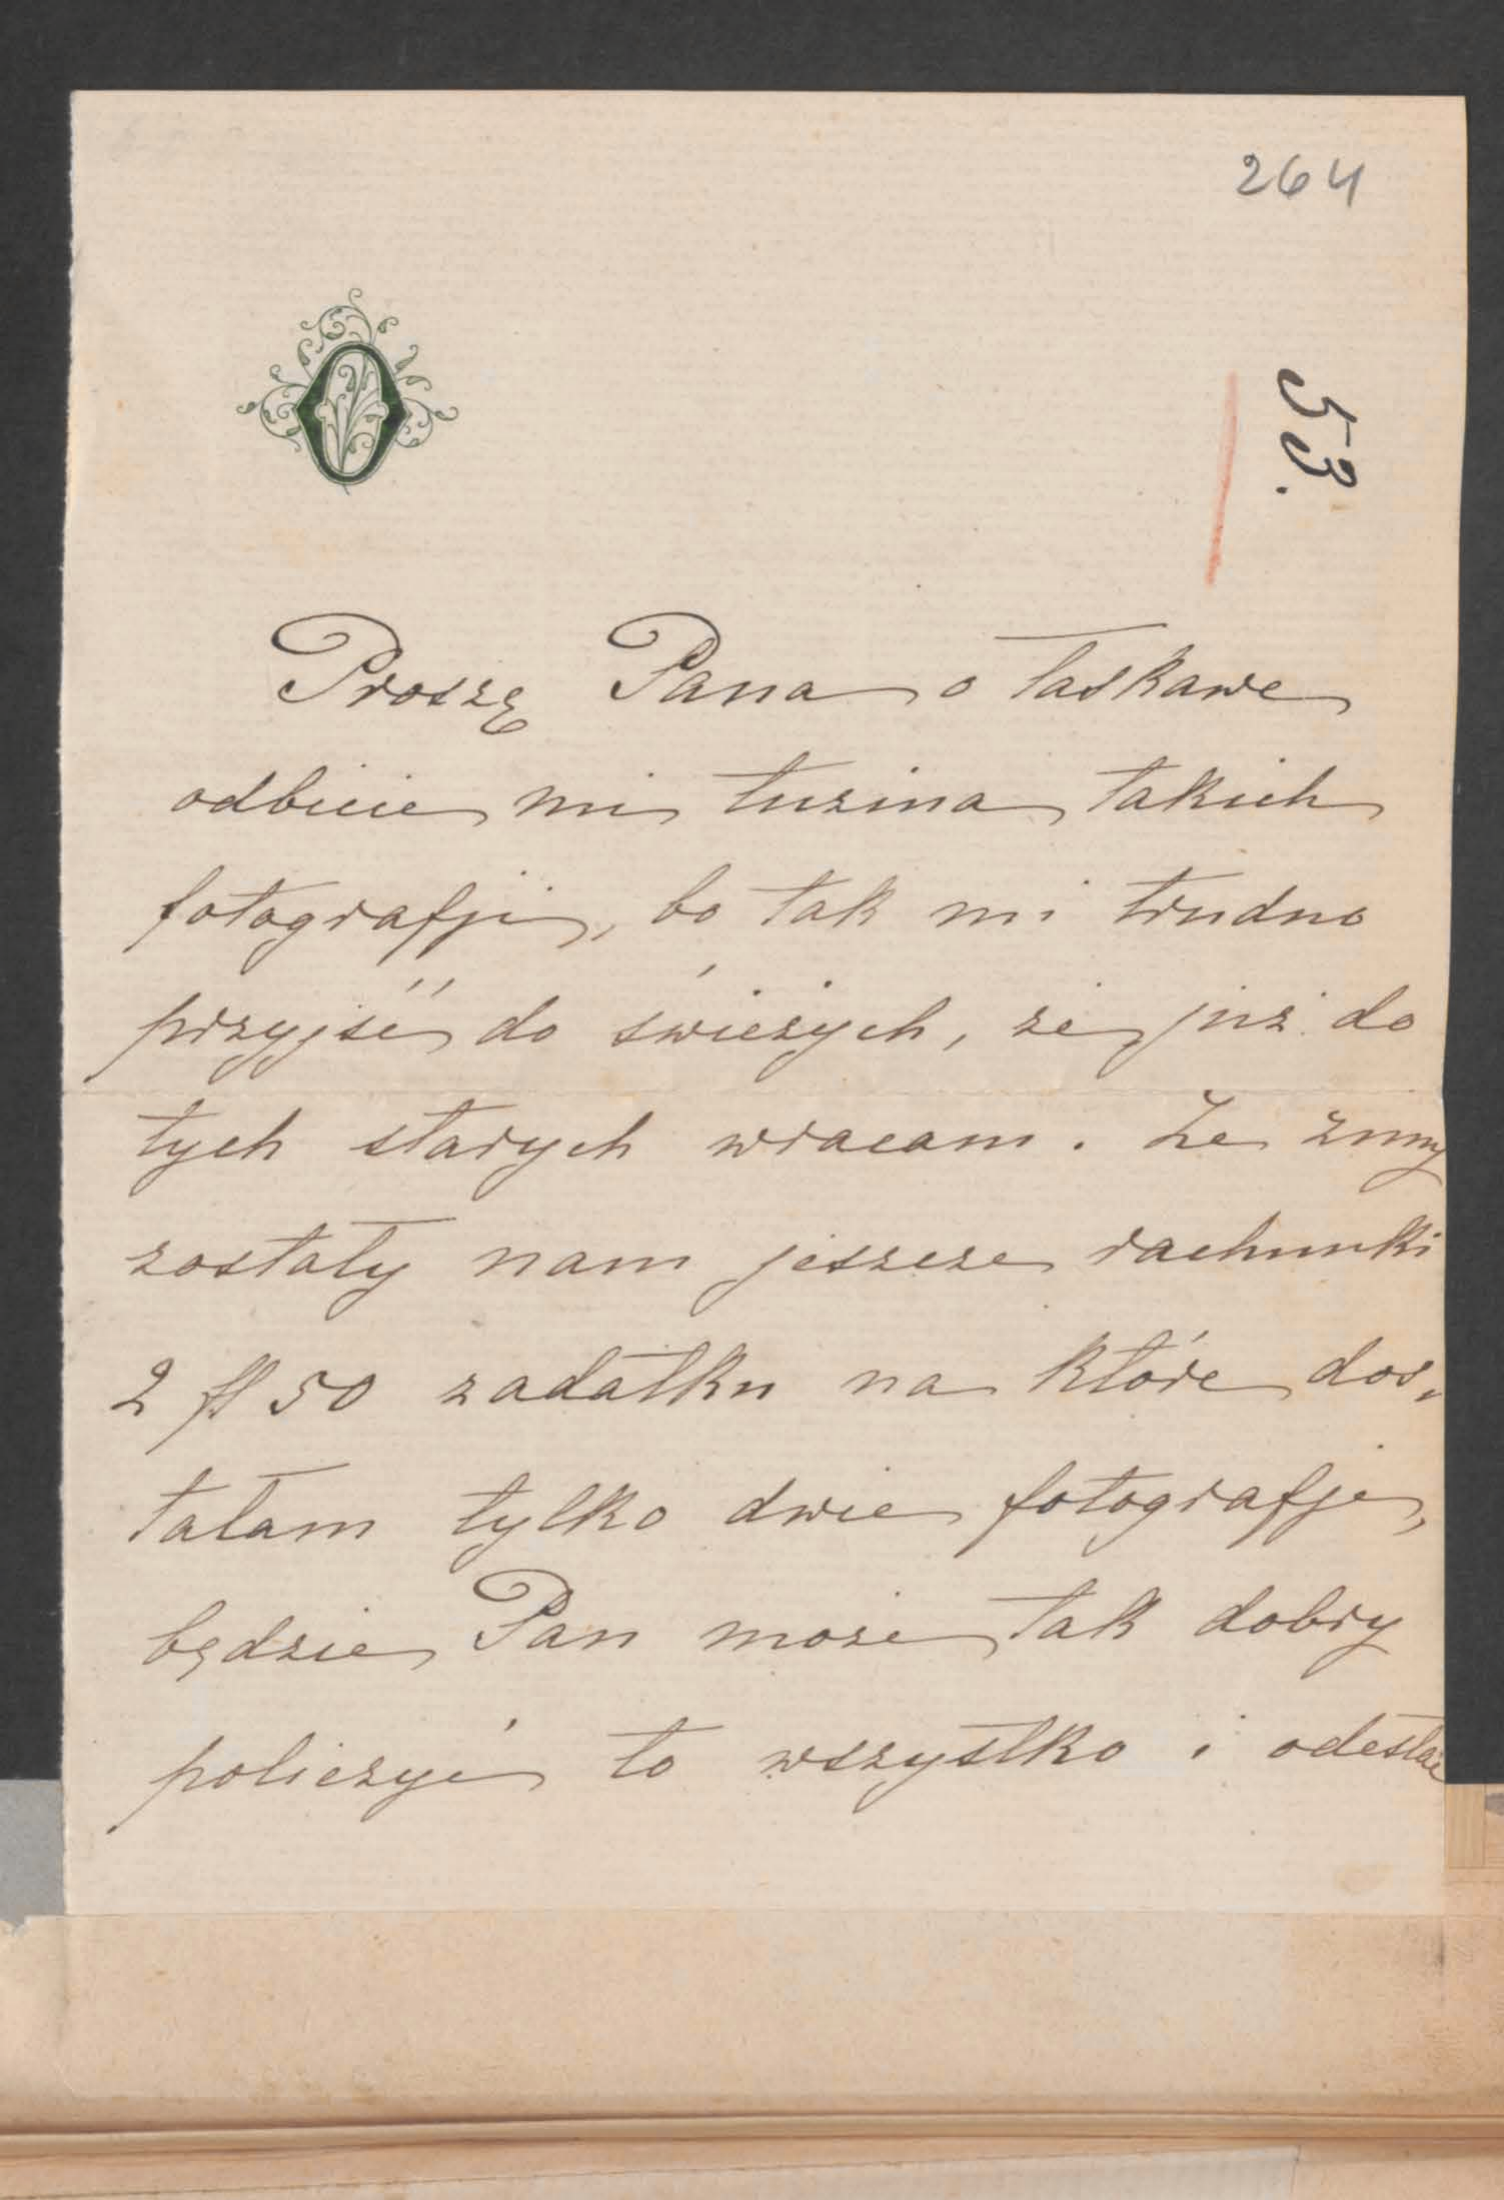 264
53.
O
Proszę Pana o łaskawe
odbicie mi tuzina takich
fotografji, bo tak mi trudno
przyjść do świeżych, że już do
tych starych wracam. Ze zimy
zostały nam jeszcze rachunki
2 fl 50 zadatku na które dos„
tałam tylko dwie fotografje,
będzie Pan może tak dobry
policzyć to wszystko i odesłać